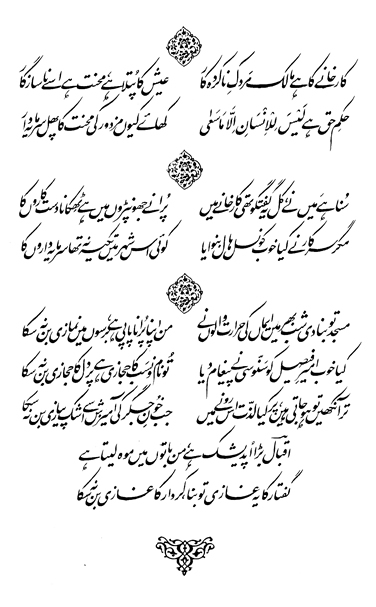 کارخانے کا ہے مالک مردکِ ناکردہ کار
عیش کا پتلا ہے محنت ہے اسے ناسازگار
حکمِ حق ہے لَیْسَ لِلْاِنْسَانِ اِلَّا مَا سَعٰی
کھائے کیوں مزدور کی محنت کا پھل سرمایہ دار
سُنا ہے میں نے کل یہ گفتگو تھی کارخانے میں
پُرانے جھونپڑوں میں ہے ٹھکانا دستکاروں کا
مگر سرکار نے کیا خوب کونسل ہال بنوایا
کوئی اس شہر میں تکیہ نہ تھا سرمایہ داروں کا
مسجد تو بنا دی شب بھر میں ایماں کی حرارت والوں نے
من اپنا پُرانا پاپی ہے برسوں میں نمازی بن نہ سکا
کیا خوب امیرِ فیصل کو سَنّوسی نے پیغام دیا
تُو نام و نسب کا حجازی ہے پر دل کا حجازی بن نہ سکا
تر آنکھیں تو ہو جاتی ہیں پر کیا لذّت اس رونے میں
جب خونِ جگر کی آمیزش سے اشک پیازی بن نہ سکا
اقبالؔ بڑا اُپدیشک ہے من باتوں میں موہ لیتا ہے
گفتار کا یہ غازی تو بنا کردار کا غازی بن نہ سکا